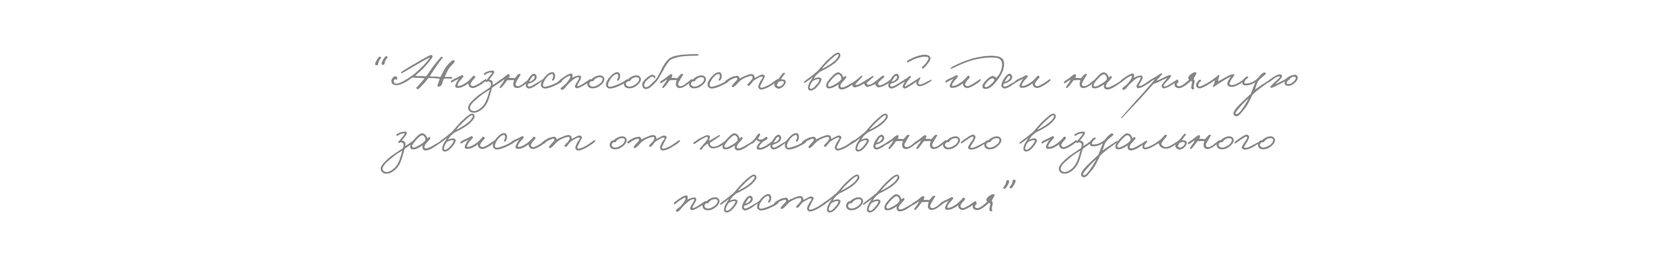 “Жизнеспособность вашей идеи напрямую
зависит от качественного визуального
повествования”